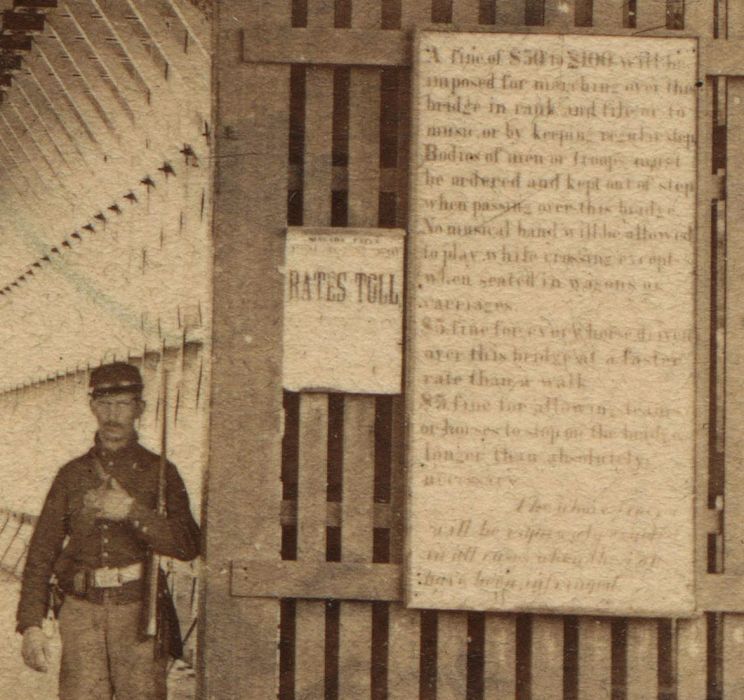 RATES TOLL
A fine of $50 to $100 will be
imposed for marching over this
bridge in rank and file or to
music, or by keeping regular step.
Bodies of men or troops must
be ordered and kept out of step
when passing over this bridge.
No musical band will be allowed
to play while crossing except
when seated in wagons or
carriages.
$5 fine for every horse driven
over this bridge at a faster
rate than a walk.
$5 fine for allowing teams
or horses to stop on the bridge
longer than absolutely
necessary.
The above fines
will be
in all cases when the
have been infringed.